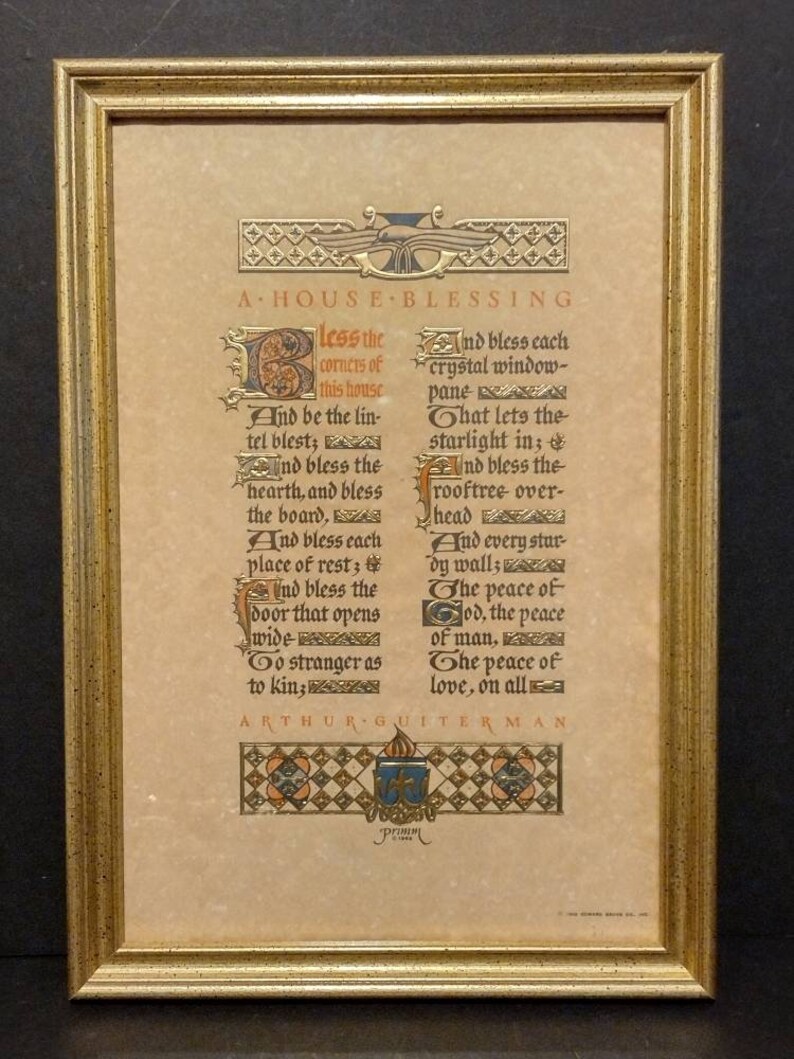 A·HOUSE·BLESSING
Bless the
corners of
this house
And be the lin-
tel blest;
And bless the
hearth, and bless
the board,
And bless each
place of rest;
And bless the
door that opens
wide
To stranger as
to kin;
And bless each
crystal window-
pane
That lets the
starlight in;
And bless the
rooftree over-
head
And every stur-
dy wall;
The peace of
God, the peace
of man,
The peace of
love, on all
ARTHUR·GUITERMAN
primm